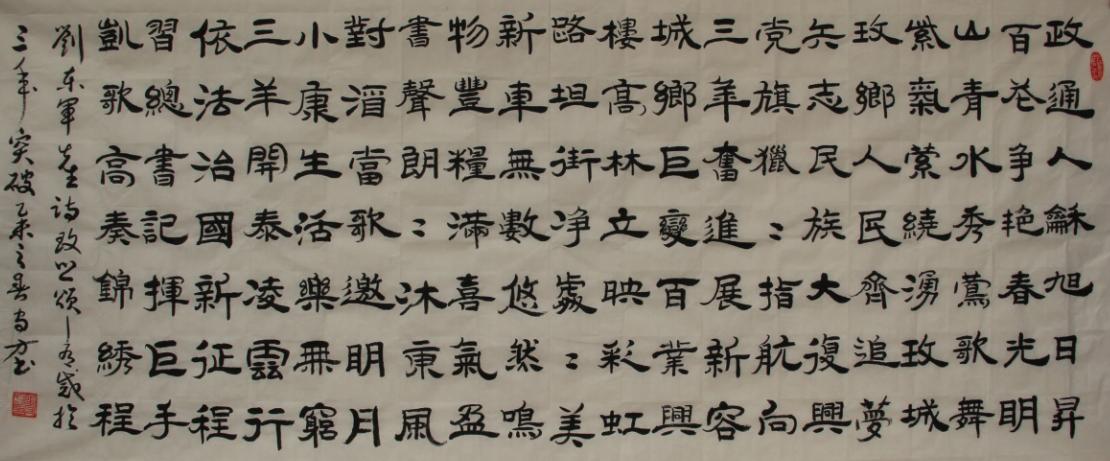 政通人龢旭日昇
百花争艳春光明
山青水秀莺歌舞
紫氣縈繞湧玫城
玫鄉人民齊追夢
矢志民族大復興
党旗獵〻指航向
三年奮進展新容
城鄉巨變百業興
樓高林立映彩虹
路坦街净處〻美
新車無數悠然鳴
物豐糧滿喜氣盈
書聲朗〻沐東風
對酒當歌邀明月
小康生活樂無窮
三羊開泰凌雲行
依法治國新征程
習總書記揮巨手
凱歌高奏錦绣程
劉东軍先生诗玫之颂
三年突破乙未之春